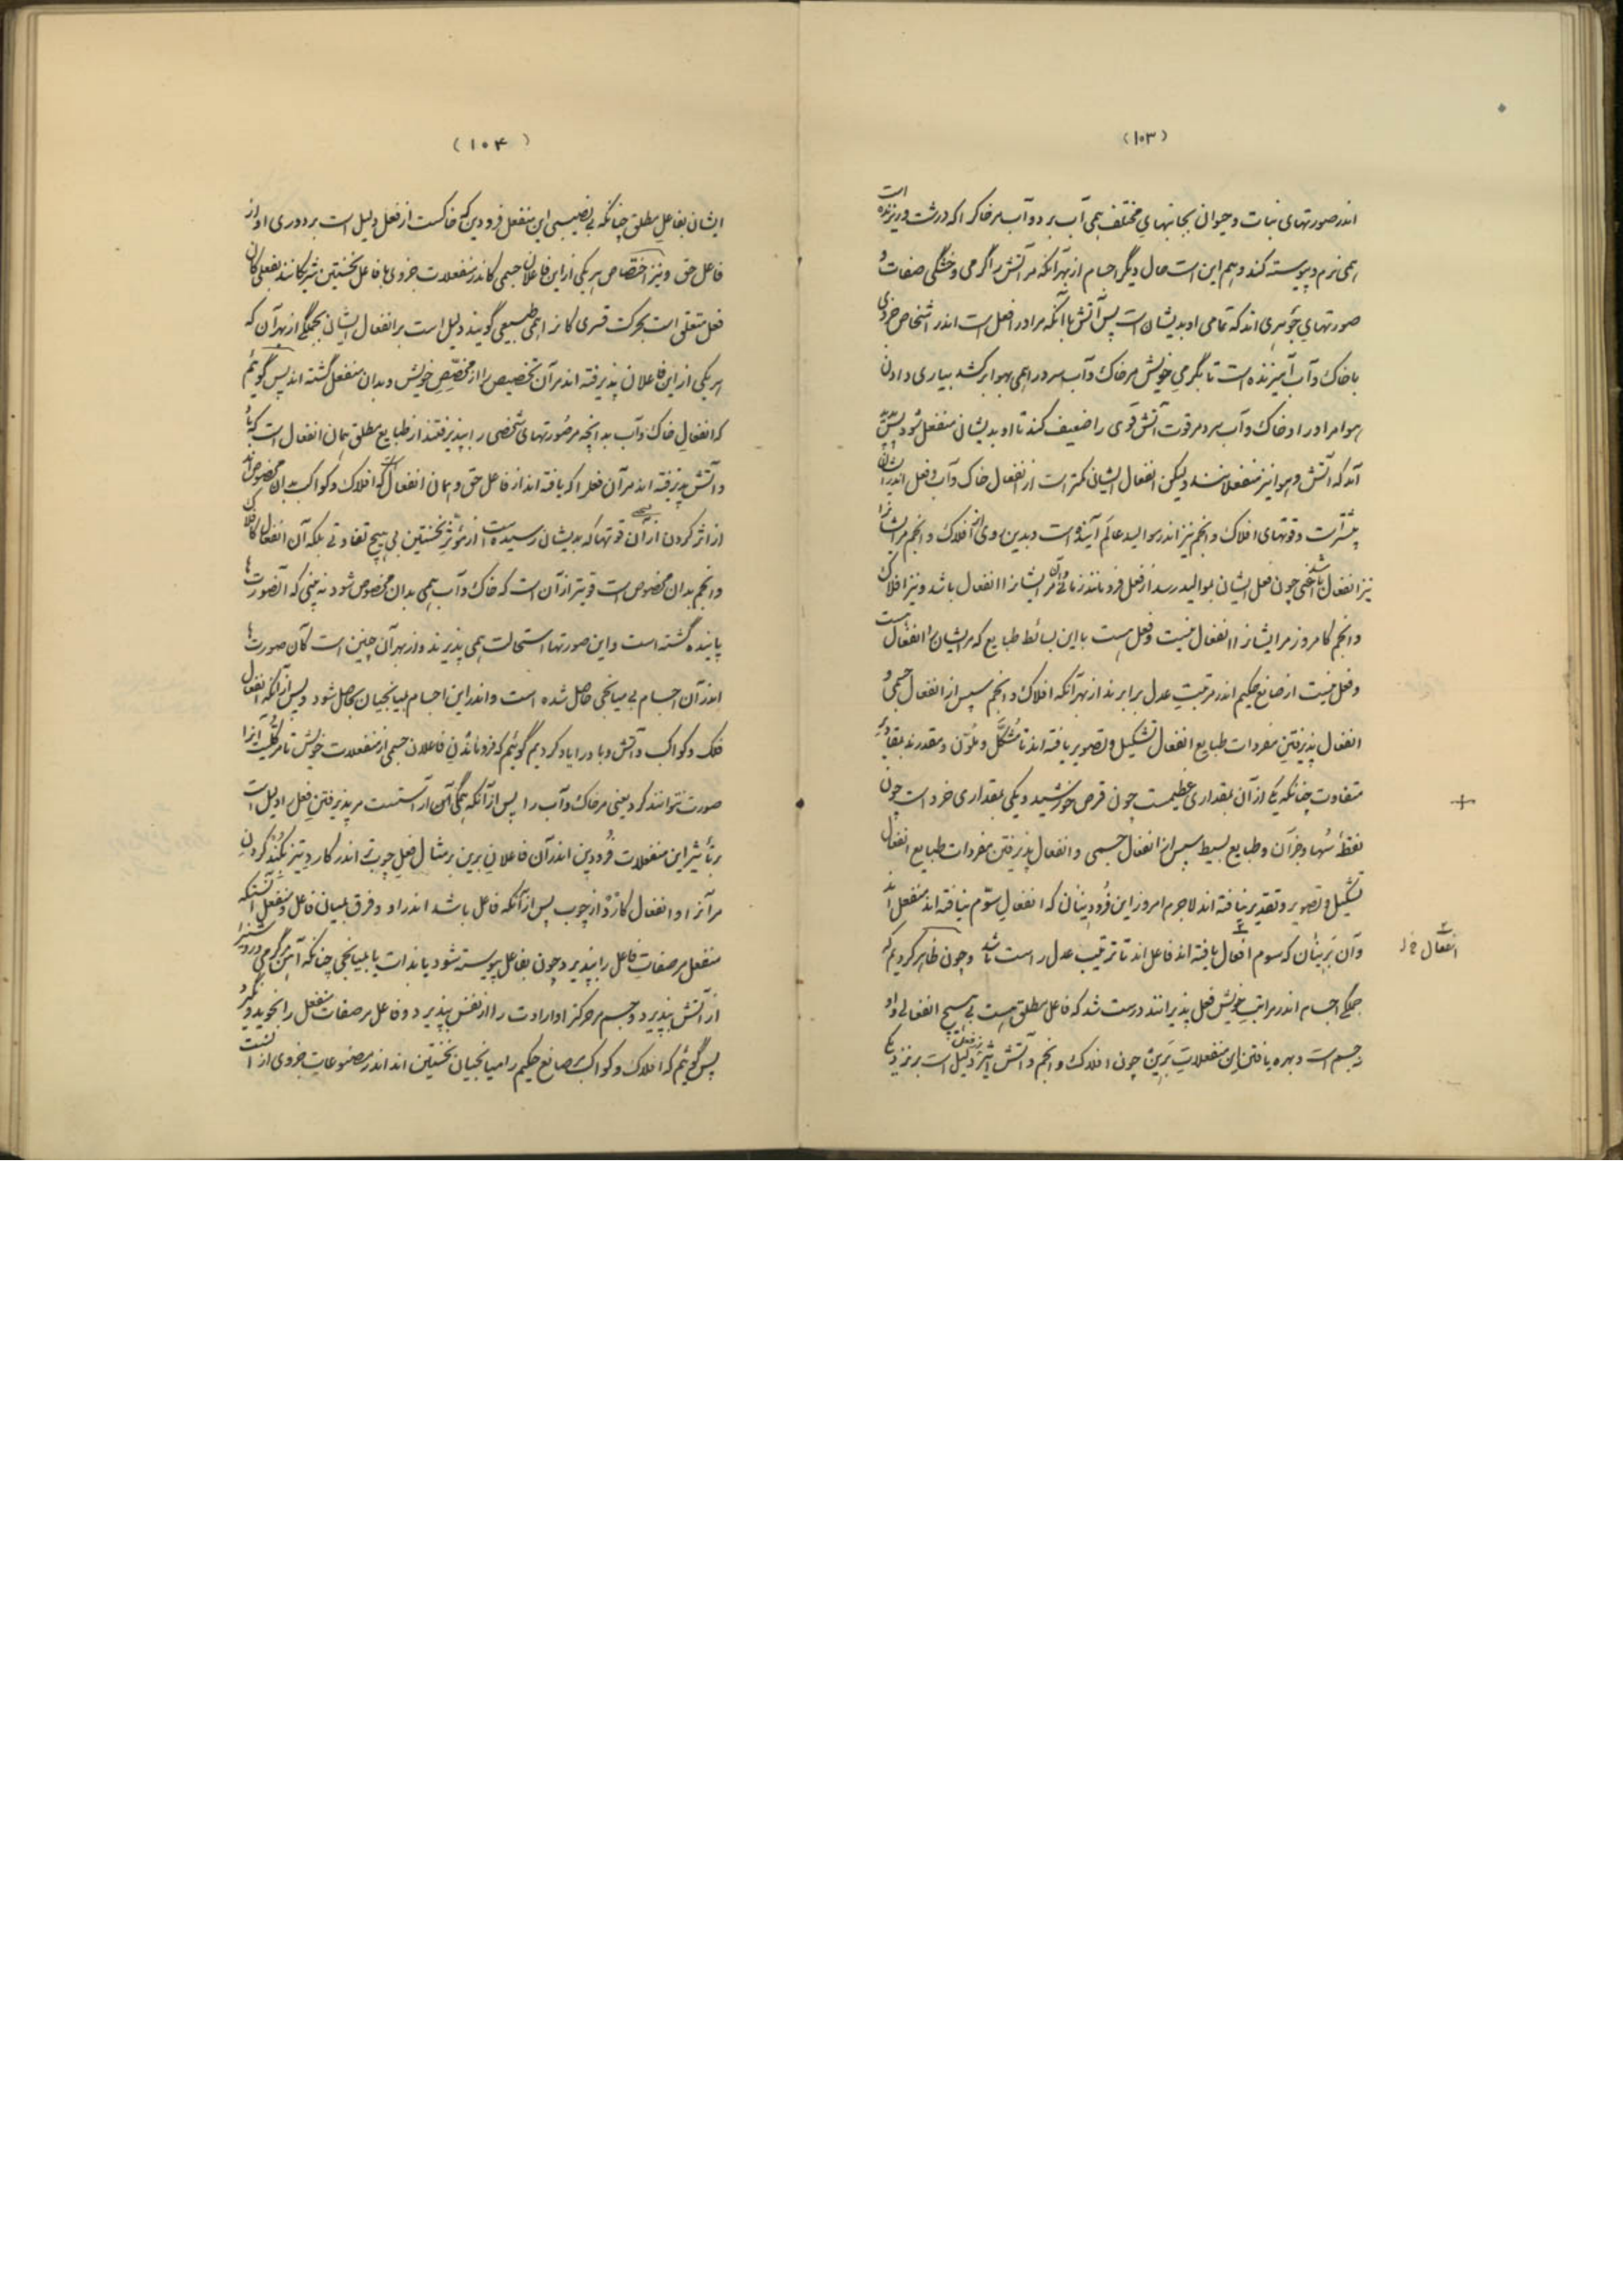 (۱۰۳)
اندر صورتهای نبات و حیوان بجانبهای مختلف همی آب برد و آب مر خاک را که درشت و ریزنده است
همی نرم و پیوسته کند و هم این است حال دیگر اجسام از بهر آنکه مر آتش را گرمی و خشکی صفات و
صورتهای جوهری اند که تمامی او بدیشان است پس آتش با آنکه مر او را فعل است اندر اشخاص جزوی
با خاک و آب آمیزنده است تا بگرمی خویش مر خاک و آب سرد را همی بهوا برکشد بیاری دادن
هوا مر او را و خاک و آب سرد مر قوت آتش قوی را ضعیف کند تا او بدیشان منفعل شود پس
آمد که آتش و هوا نیز منفعلانند ولیکن انفعال ایشان کمتر است از انفعال خاک و آب و فعل اندر ایشان
بیشتر است و قوتهای افلاک و انجم نیز اندر موالید عالم آینده است و بدین روی افلاک و انجم مر ایشانرا
نیز انفعال باشد چون فعل ایشان بموالید رسد از فعل فرو مانند مر ایشانرا انفعال باشد و نیز افلاک
و انجم کامروز مر ایشانرا انفعال نیست و فعل هست با این بسائط طبایع که مر ایشان را انفعال است
و فعل نیست از صانع حکیم اندر مرتبت عدل برابرند از بهر آنکه افلاک و انجم سپس از انفعال جسمی و
انفعال پذیرفتن مفردات طبایع انفعال تشکیل و تصویر یافته اند تا مشکّل و ملوّن و مقدرند بمقادیر
متفاوت چنانکه یکی از آن بمقداری عظیمست چون قرص خورشید و یکی بمقداری خرد است چون
نقطه سُها و جز آن و طبایع بسیط سپس از انفعال جسمی و انفعال پذیرفتن مفردات طبایع انفعال
تشکیل و تصویر و تقدیر نیافته اند لاجرم امروز این فرودینان که انفعال سوّم نیافته اند منفعل اند
و آن برینان که سوم انفعال یافته اند فاعل اند تا ترتیب عدل راست باشد و چون ظاهر کردیم که
جملگی اجسام اندر مراتب خویش فعل پذیرانند درست شد که فاعل مطلق هست بی هیچ انفعالی و او
نه جسم است و بهره یافتن این منفعلات برین چون افلاک و انجم و آتش اثیر دلیل است بر نزدیکی
انفعال
(۱۰۴)
ایشان بفاعل مطلق چنانکه بی نصیبی این منفعل فرودین که خاکست از فعل دلیل است بر دوری او از
فاعل حق و نیز اختصاص هر یکی از این فاعلان جسمی کاندر منفعلات جزوی با فاعل نخستین شریکانند بفعلی کان
فعل متعلق است بحرکت قسری کانرا همی طبیعی گویند دلیل است بر انفعال ایشان بجملگی از بهر آن که
هر یکی از این فاعلان پذیرفته اند مر آن تخصیص را از مخصّص خویش و بدان منفعل گشته اند پس گوئیم
که انفعال خاک و آب بدانچه مر صورتهای شخصی را بپذیرفتند از طبایع مطلق همان انفعال است که
و آتش پذیرفته اند مر آن فعل را که یافته اند از فاعل حق و همان انفعال است که افلاک و کواکب بدان مخصوص اند
از اثر کردن از آن قوتها که بدیشان رسیده است از مؤثر نخستین بی هیچ تفاوتی بلکه آن انفعال کافلاک
و انجم بدان مخصوص است قویتر از آن است که خاک و آب همی بدان مخصوص شود نه بینی که آنصورتها
پاینده گشته است و این صورتها استحالت همی پذیرند و از بهر آن چنین است کان صورتها
اندر آن اجسام بی میانجی حاصل شده است و اندر این اجسام بمیانجیان حاصل شود و پس از آنکه انفعال
فلک و کواکب و آتش و باد را یاد کردیم گوئیم که فرو ماندن فاعلان جسمی از منفعلات خویش تا مر کلیت آنرا
صورت نتوانند کرد یعنی مر خاک و آب را پس از آنکه همگی آن آراستست مر پذیرفتن فعل را دلیل است
بر تأثیر این منفعلات فرودین اندر آن فاعلان برین بر مثال فعل چوب تر اندر کارد تیز بکند کردن
مر آنرا و انفعال کارد از چوب پس از آنکه فاعل باشد اندر او و فرق بمیان فاعل و منفعل آنستکه
منفعل مر صفات فاعل را بپذیرد چون بفاعل پیوسته شود یا بذات یا بمیانجی چنانکه آهن گرمی و روشنی را
از آتش بپذیرد و جسم مر حرکت ارادت را از نفس بپذیرد و فاعل مر صفات منفعل را نجوید و نگیرد
پس گوئیم که افلاک و کواکب مر صانع حکیم را میانجیان نخستین اند اندر مصنوعات جزوی از